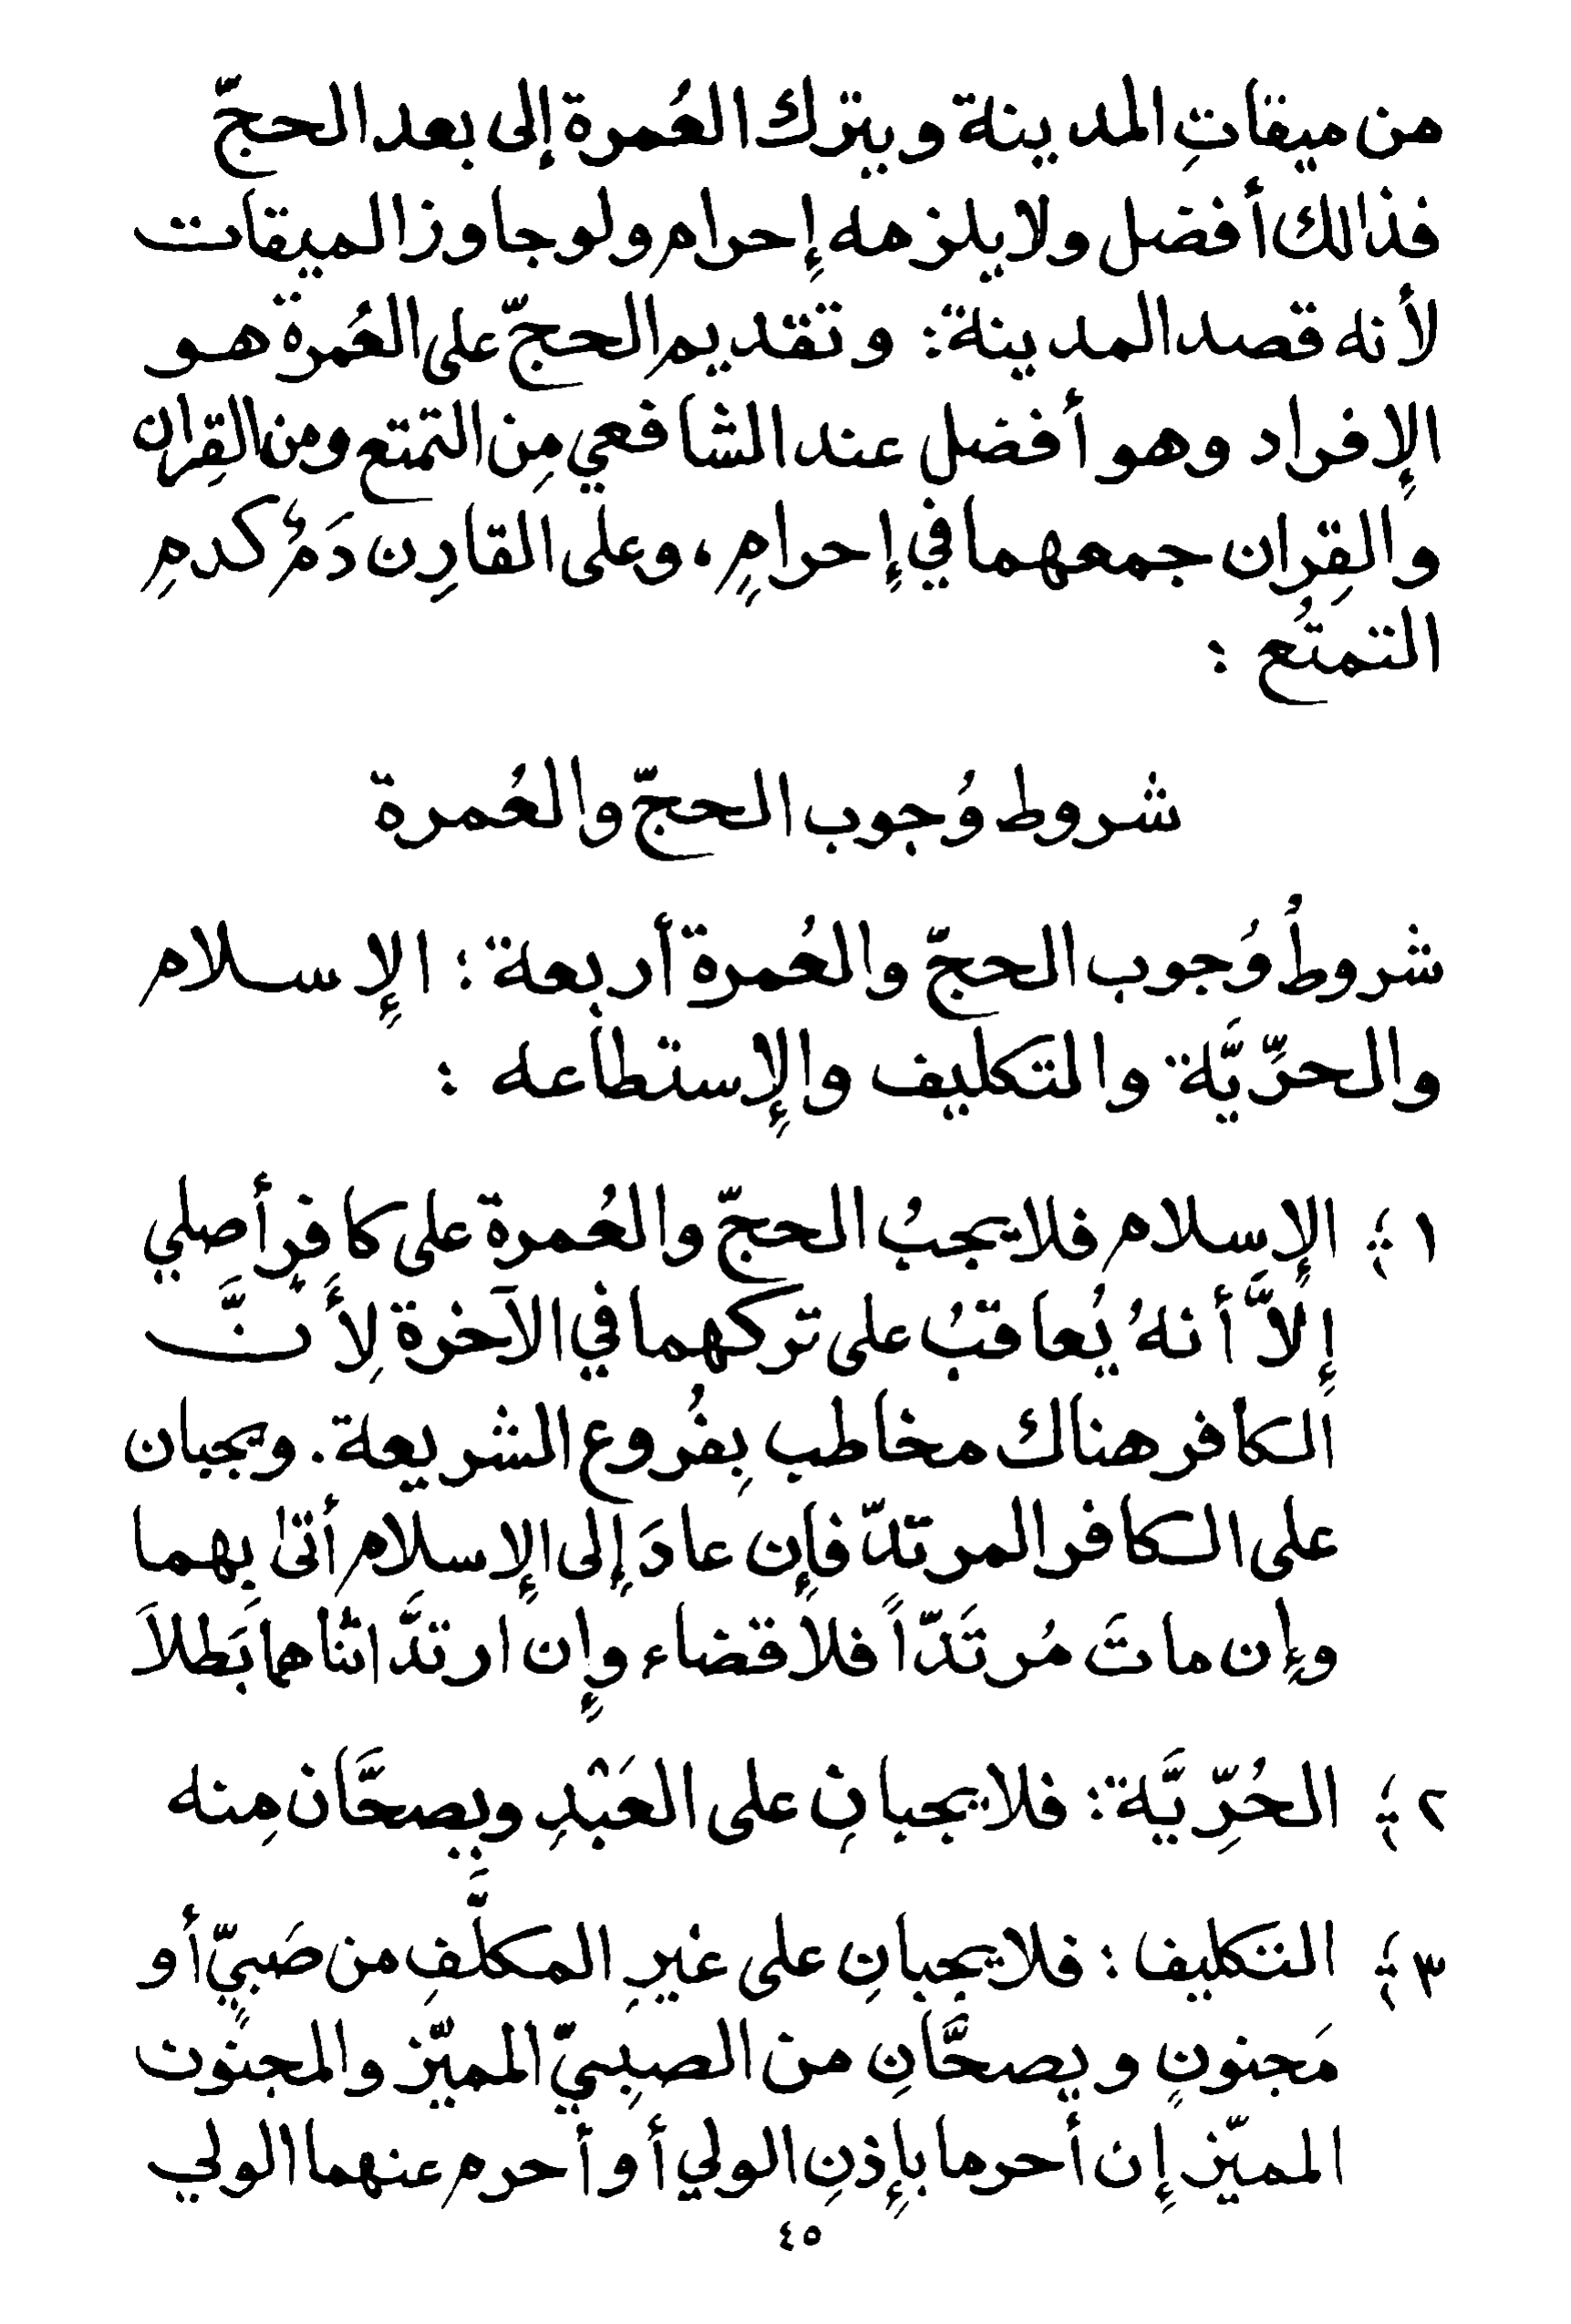 من ميقاتِ المدينة ويترك العُمرة إلى بعد الحجّ
فذالك أفضل ولا يلزمه إحرام ولو جاوز الميقات
لأنه قصد المدينة: وتقديم الحجّ على العُمرة هو
الإفراد وهو أفضل عند الشافعي مِن التمتع ومن القِران
والقِران جمعهما في إحرامٍ، وعلى القارِن دَمٌ كدمِ
التمتُع :
شروط وُجوب الحجّ والعُمرة
شروطُ وُجوب الحجّ والعُمرة أربعة: الإسلام
والحرِّيَّة والتكليف والإستطاعه :
١ الإسلام فلا يجبُ الحجّ والعُمرة على كافرٍ أصلي
إلاَّ أنهُ يُعاقبُ على تركهما في الآخرة لِأَنَّ
الكافر هناك مخاطب بِفُروع الشريعة. ويجبان
على الكافر المرتدّ فإن عادَ إلى الإسلام أتى بهما
وإن ماتَ مُرتَدّاً فلا قضاء وإن ارتدَّ اثناهما بَطلاَ
٢ الحُرِّيَّة: فلا يجبانِ على العَبْدِ ويصحَّان مِنه
٣ التكليف : فلا يجبانِ على غيرِ المكلَّفِ من صَبيّ أو
مَجنونٍ ويصحَّانِ من الصبيّ المميّز والمجنون
المميّز إن أحرما بإذنِ الولي أو أحرم عنهما الولي
٤٥